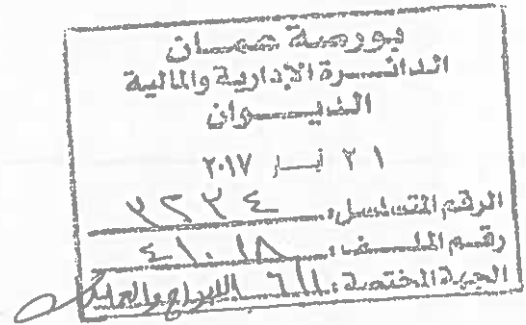 بورصة عمان
الدائرة الإدارية والمالية
الديوان
٢١ أيار ٢٠١٧
الرقم المتسلسل:
رقم الملف: ٤١٠١٨
الجهة المختصة: الإدراج